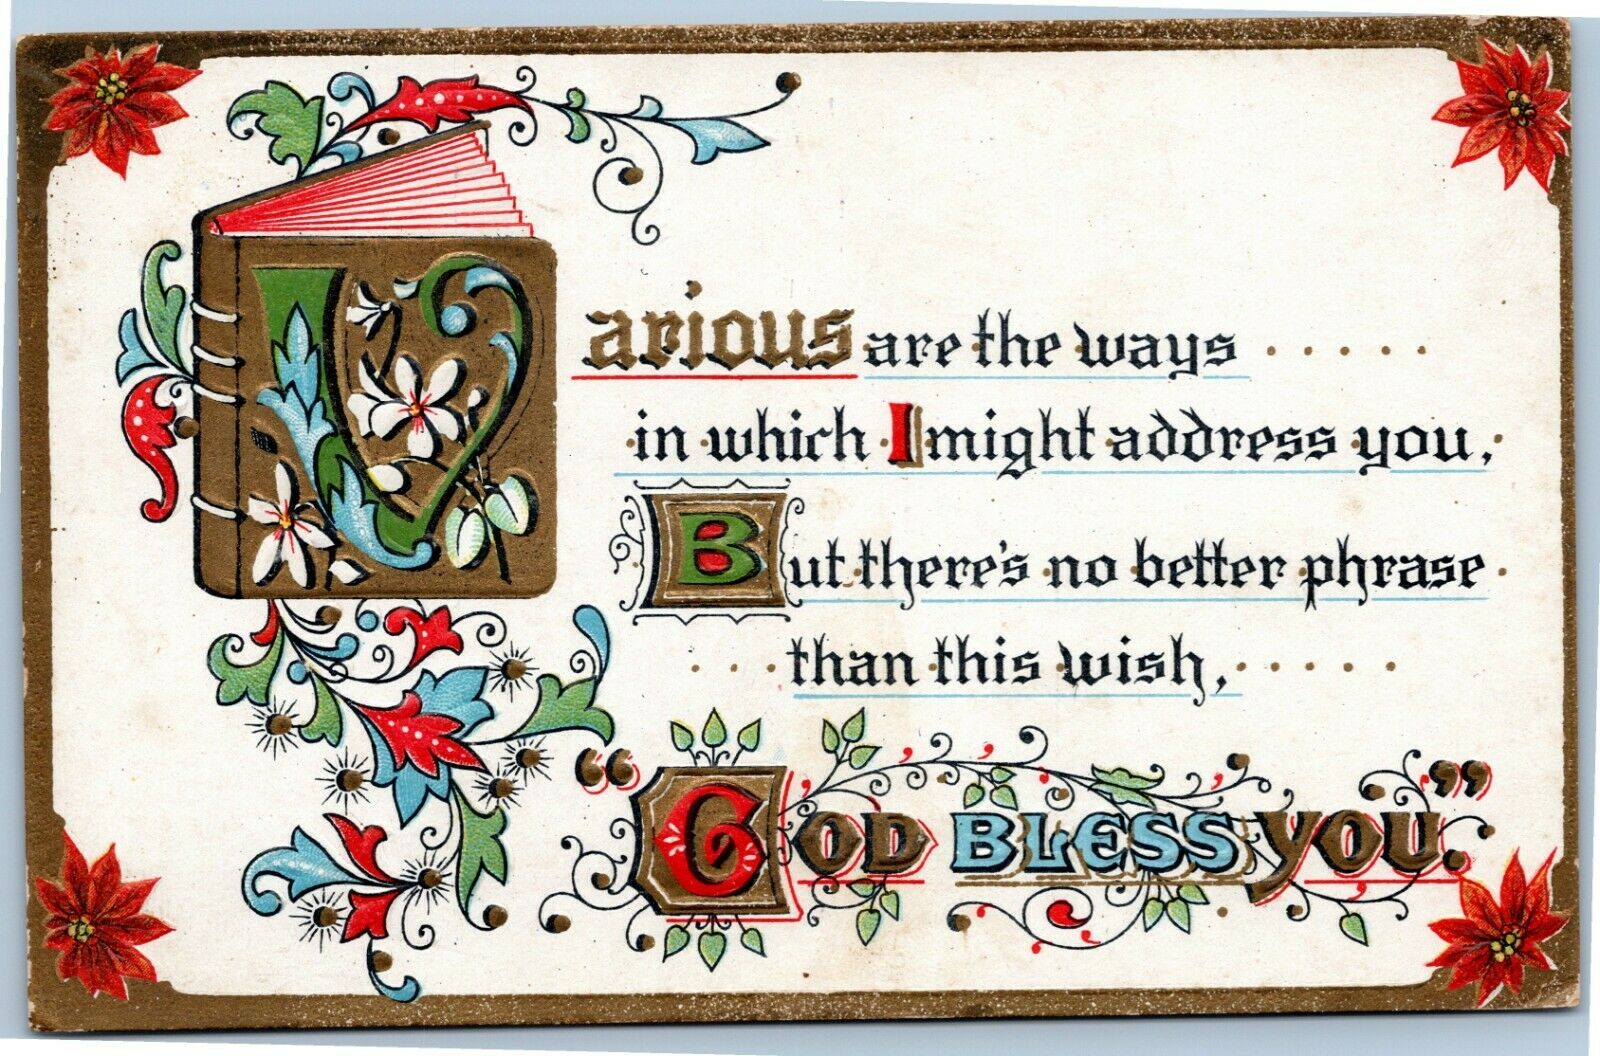 Various are the ways
in which I might address you,
But there's no better phrase
than this wish,
"God BLESS you."